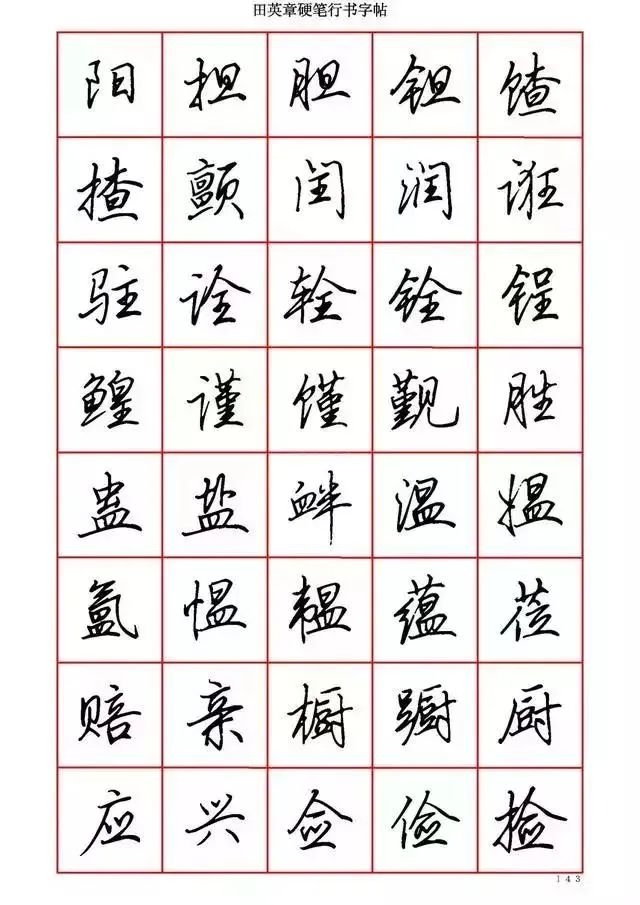 田英章硬笔行书字帖
阳担胆钽馇
揸颤闰润诳
驻诠轻铨锃
鳇谨馑觐胜
蛊盐衅温榅
氲愠韫蕴莅
赔亲橱蹰厨
应兴佥俭捡
143